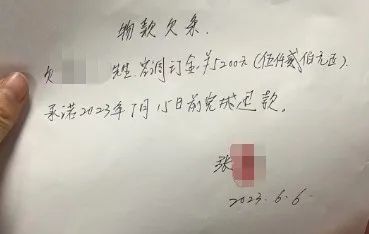 物款欠条.
欠 先生 空调订金¥5200元(伍仟贰佰元正).
承诺2023年7月15日前完成退款。
张
2023.6.6.